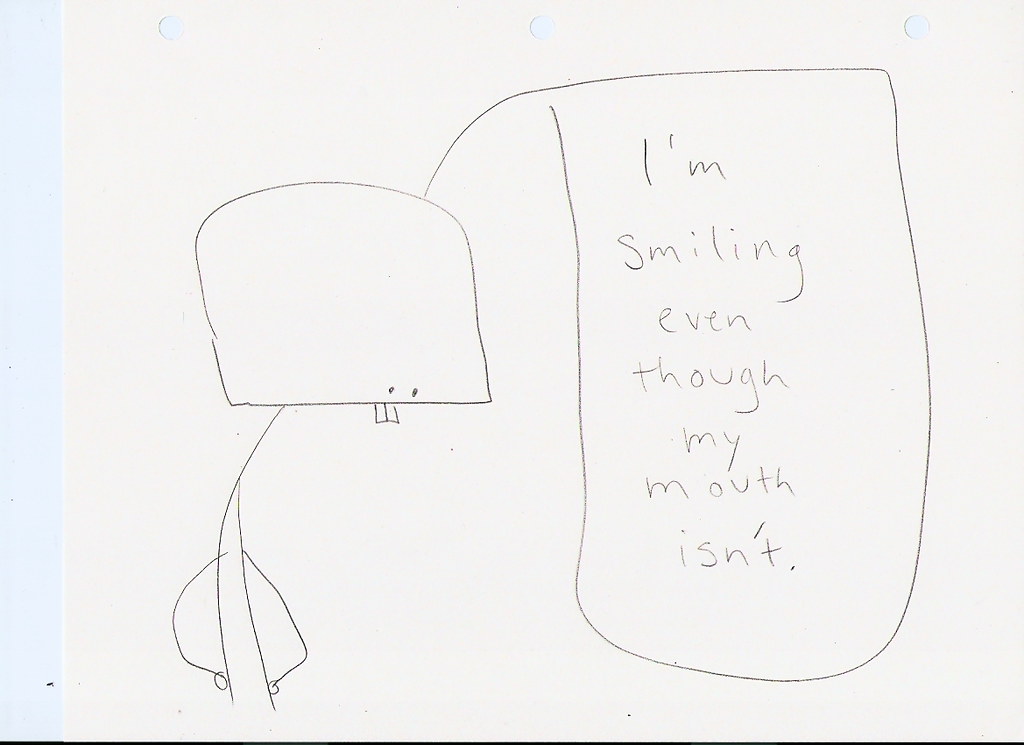 I'm
smiling
even
though
my
mouth
isn't.